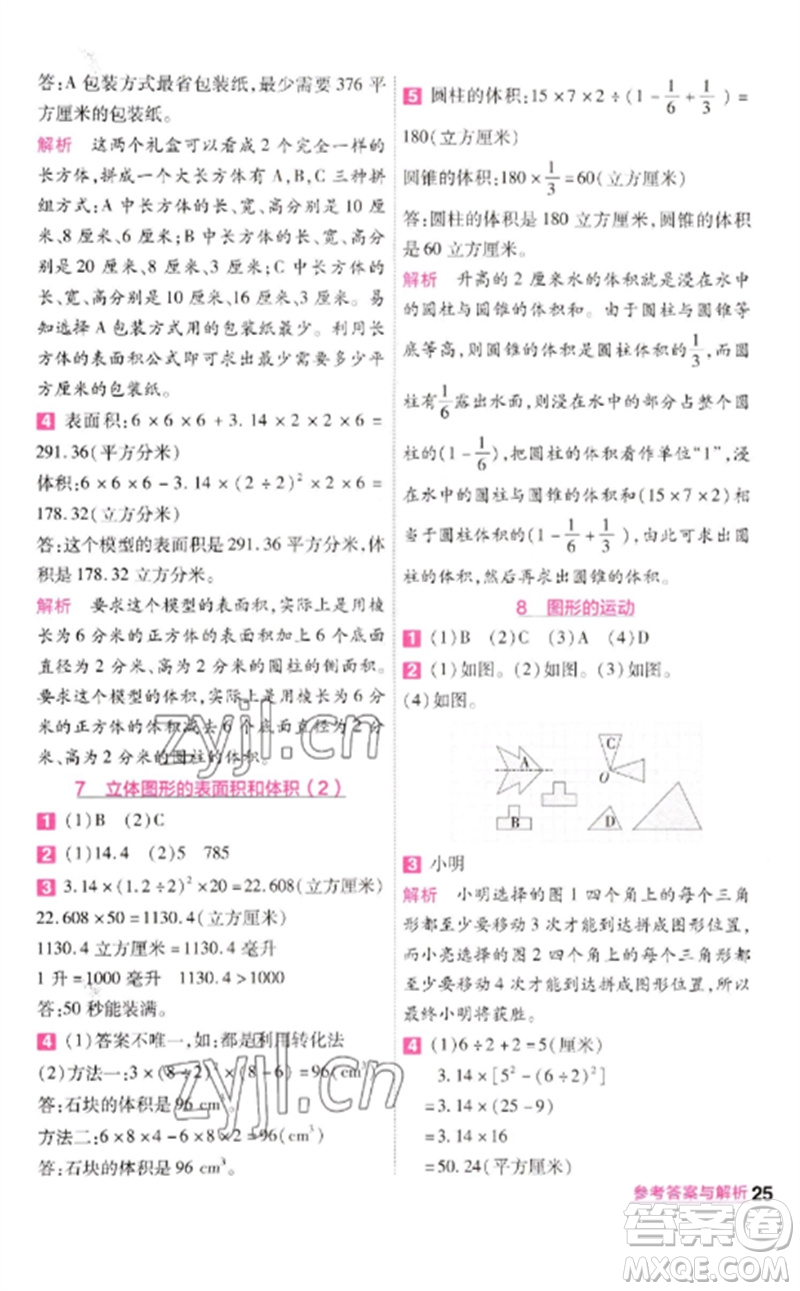 答:A 包装方式最省包装纸,最少需要 376 平
方厘米的包装纸。
解析 这两个礼盒可以看成 2 个完全一样的
长方体,拼成一个大长方体有 A,B,C 三种拼
组方式:A 中长方体的长、宽、高分别是 10 厘
米、8 厘米、6 厘米;B 中长方体的长、宽、高分别
是 20 厘米、8 厘米、3 厘米;C 中长方体的
长、宽、高分别是 10 厘米、16 厘米、3 厘米。易
知选择 A 包装方式用的包装纸最少。利用长
方体的表面积公式即可求出最少需要多少平
方厘米的包装纸。
4 表面积:6×6×6+3.14×2×2×6=
291.36(平方分米)
体积:6×6×6-3.14×(2÷2)²×2×6=
178.32(立方分米)
答:这个模型的表面积是 291.36 平方分米,体
积是 178.32 立方分米。
解析 要求这个模型的表面积,实际上是用棱
长为 6 分米的正方体的表面积加上 6 个底面
直径为 2 分米、高为 2 分米的圆柱的侧面积。
要求这个模型的体积,实际上是用棱长为 6 分
米的正方体的体积减去 6 个底面直径为 2 分
米、高为 2 分米的圆柱的体积。
7 立体图形的表面积和体积(2)
1 (1)B (2)C
2 (1)14.4 (2)5 785
3 3.14×(1.2÷2)²×20=22.608(立方厘米)
22.608×50=1130.4(立方厘米)
1130.4 立方厘米=1130.4 毫升
1 升=1000 毫升 1130.4>1000
答:50 秒能装满。
4 (1)答案不唯一,如:都是利用转化法
(2)方法一:3×(8÷2)²×(8-6)=96(cm³)
答:石块的体积是 96 cm³。
方法二:6×8×4-6×8×2=96(cm³)
答:石块的体积是 96 cm³。
5 圆柱的体积:15×7×2÷(1-1/6+1/3)=
180(立方厘米)
圆锥的体积:180×1/3=60(立方厘米)
答:圆柱的体积是 180 立方厘米,圆锥的体积
是 60 立方厘米。
解析 升高的 2 厘米水的体积就是浸在水中
的圆柱与圆锥的体积和。由于圆柱与圆锥等
底等高,则圆锥的体积是圆柱体积的1/3,而圆
柱有1/6露出水面,则浸在水中的部分占整个圆
柱的(1-1/6)。把圆柱的体积看作单位“1”,浸
在水中的圆柱与圆锥的体积和(15×7×2)相
当于圆柱体积的(1-1/6+1/3),由此可以求出圆
柱的体积,然后再求出圆锥的体积。
8 图形的运动
1 (1)B (2)C (3)A (4)D
2 (1)如图。(2)如图。(3)如图。
(4)如图。
A
C
O
B
D
3 小明
解析 小明选择的图 1 四个角上的每个三角
形都至少要移动 3 次才能到达拼成图形位置,
而小亮选择的图 2 四个角上的每个三角形都
至少要移动 4 次才能到达拼成图形位置,所以
最终小明将获胜。
4 (1)6÷2+2=5(厘米)
3.14×[5²-(6÷2)²]
=3.14×(25-9)
=3.14×16
=50.24(平方厘米)
参考答案与解析 25
zyjl.cn
zyjl.cn
答案卷
MXQE.COM